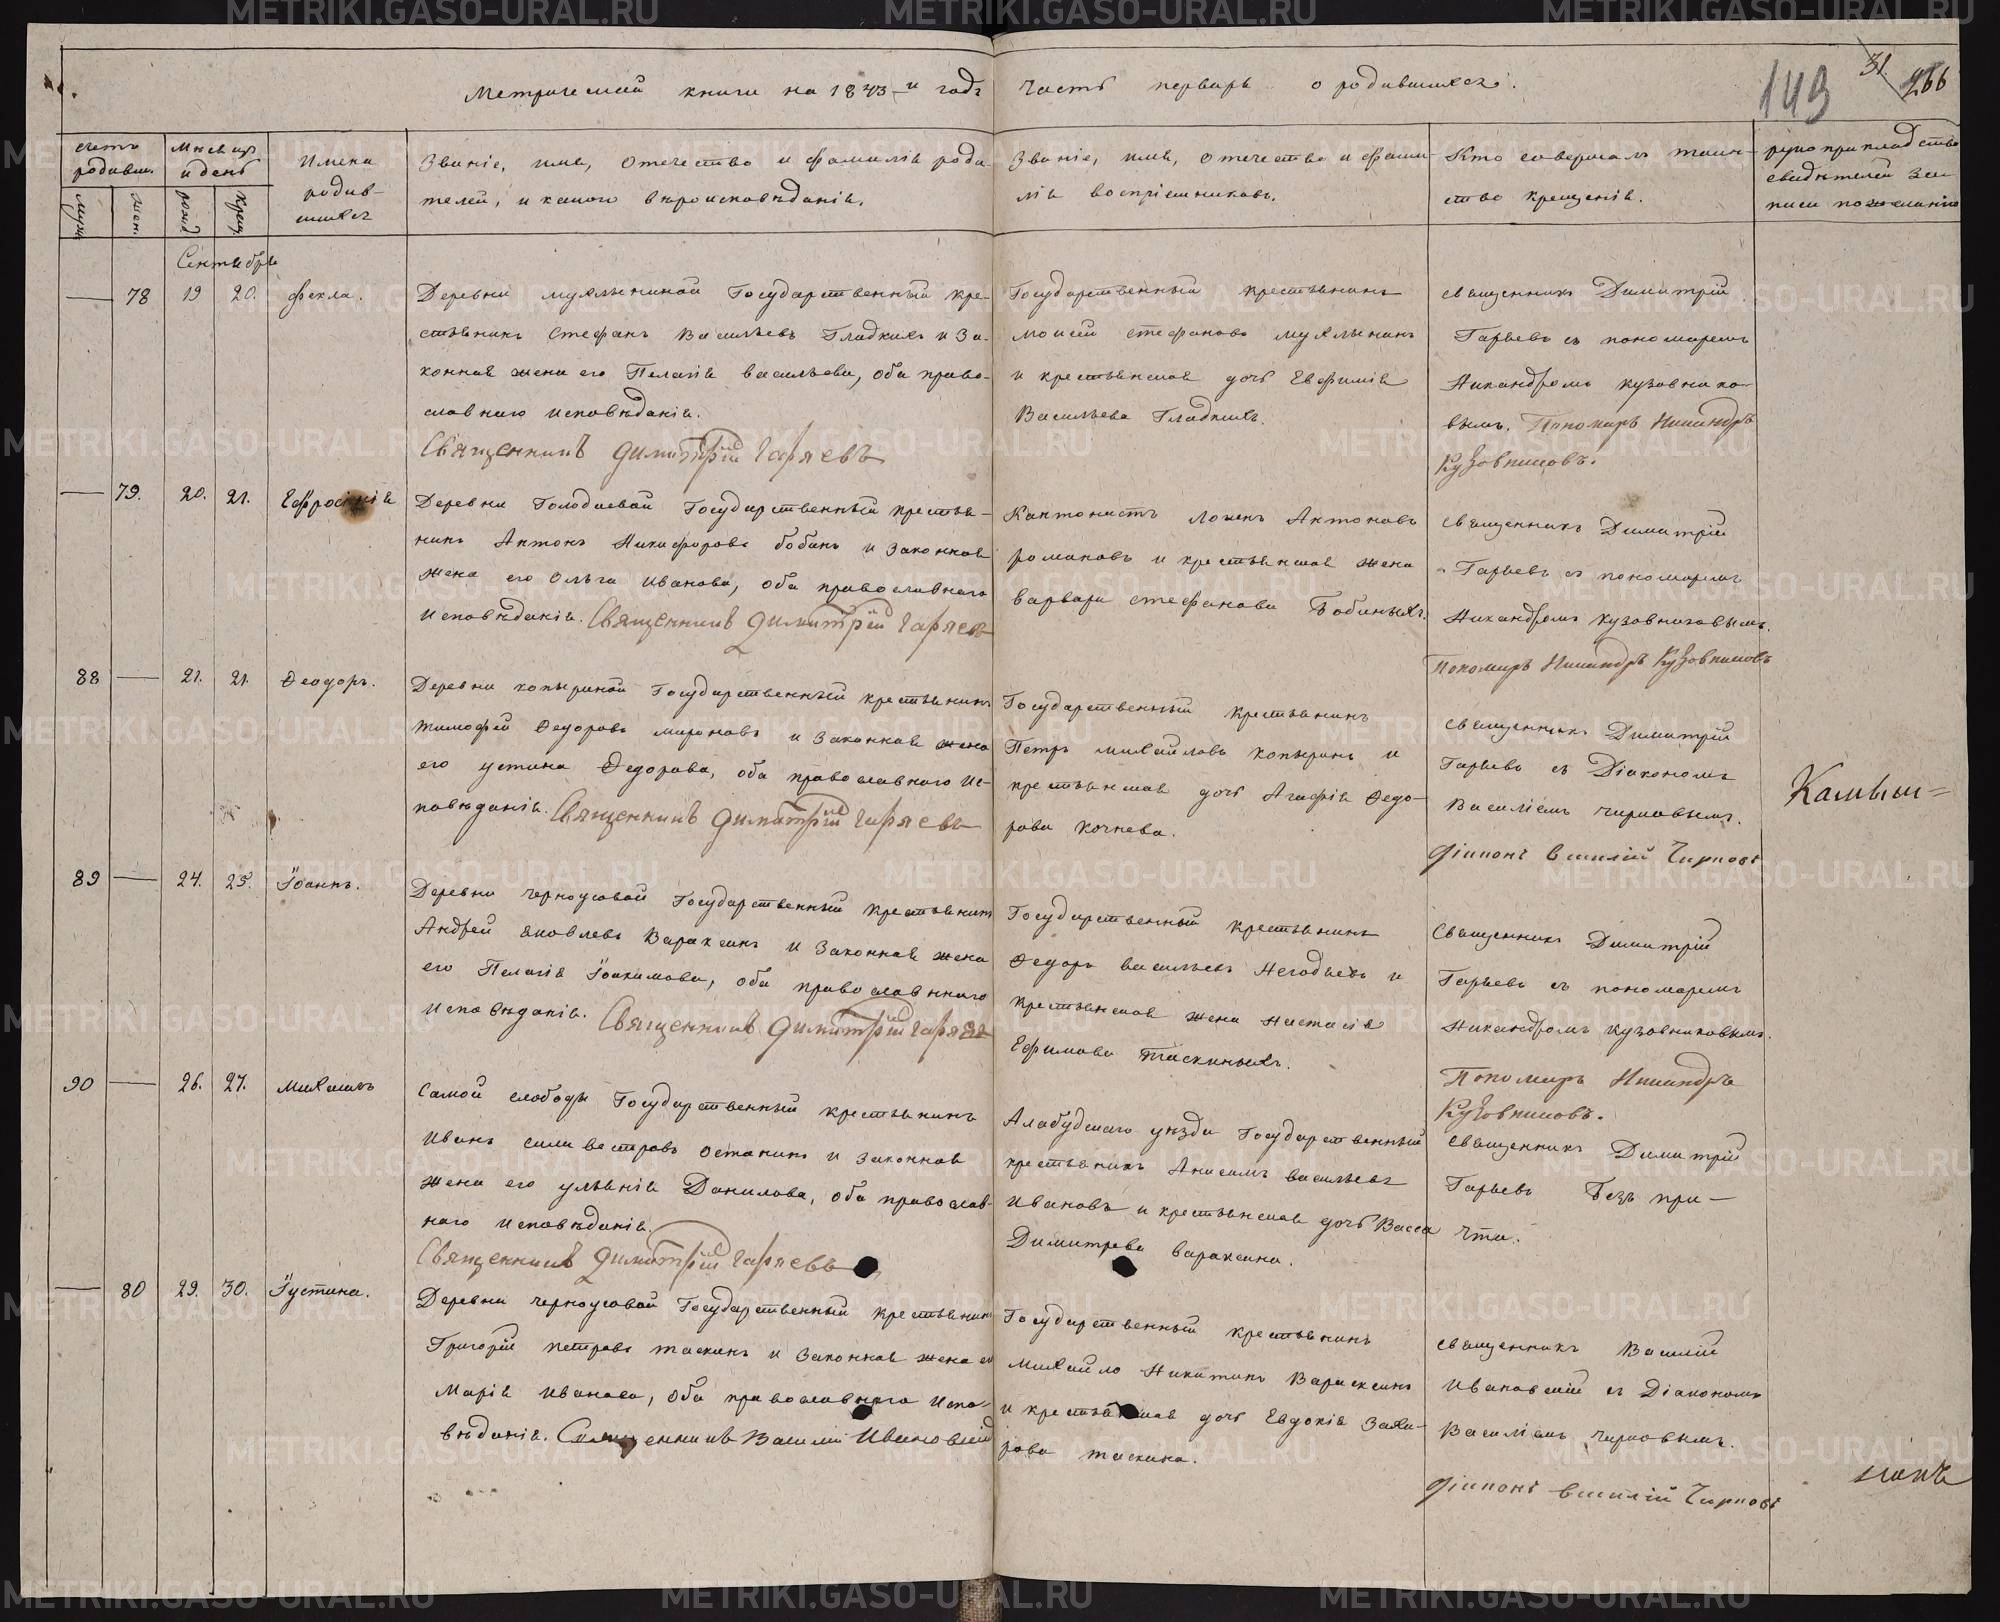 Метрической книги на 1873-й годъ
Часть первая о родившихся.
149
31.
266
счетъ родивш.
мужс.
жен.
Мѣсяцъ и день
рожд
крещ.
Имена
родив-
шихся
Званіе, имя, отечество и фамилія роди-
телей, и какого вѣроисповѣданія.
Званіе, имя, отечество и фами-
лія воспріемниковъ.
Кто совершалъ таин-
ство крещенія.
рукоприкладство
свидѣтелей за-
писи по желанію
Сентября
78 19 20. Фекла.
Деревни Мухлыниной Государственный кре-
стьянинъ Стефанъ Васильевъ Гладкихъ и За-
конная жена его Пелагія Васильева, оба право-
славнаго исповѣданія.
Священникъ Димитрій Гаряевъ
Государственный крестьянинъ
Моисей Стефановъ Мухлынинъ
и крестьянская дочь Евфимія
Васильева Гладкихъ.
Священникъ Димитрій
Гаряевъ съ пономаремъ
Никандромъ Кузовнико-
вымъ. Пономарь Никандръ
Кузовниковъ.
79. 20. 21. Ефросинія
Деревни Голодаевой Государственный крестья-
нинъ Антонъ Никифоровъ Бобинъ и Законная
жена его Ольга Иванова, оба православнаго
исповѣданія. Священникъ Димитрій Гаряевъ
Кантонистъ Антоновъ
Романовъ и крестьянская жена
Варвара Стефанова Бобиныхъ.
Священникъ Димитрій
Гаряевъ съ пономаремъ
Никандромъ Кузовниковымъ.
Пономарь Никандръ Кузовниковъ
88 21. 21. Ѳеодоръ.
Деревни Копыриной Государственный крестьянинъ
Тимофей Ѳедоровъ Мироновъ и Законная жена
его Устина Ѳедорова, оба православнаго ис-
повѣданія. Священникъ Димитрій Гаряевъ
Государственный крестьянинъ
Петръ Михайловъ Копыринъ и
крестьянская дочь Агафія Ѳедо-
рова Кочнева.
Священникъ Димитрій
Гаряевъ съ Діакономъ
Василіемъ Чирковымъ.
Діаконъ Василій Чирковъ
Камыш=
89 24. 25. Іоаннъ.
Деревни Черноусовой Государственный крестьянинъ
Андрей Яковлевъ Вараксинъ и Законная жена
его Пелагія Іоакимова, оба православнаго
исповѣданія. Священникъ Димитрій Гаряевъ
Государственный крестьянинъ
Ѳедоръ Васильевъ Негодяевъ и
крестьянская жена Настасія
Ефимова Таскиныхъ.
Священникъ Димитрій
Гаряевъ съ пономаремъ
Никандромъ Кузовниковымъ.
Пономарь Никандръ
Кузовниковъ.
90 26. 27. Михаилъ
Самой слободы Государственный крестьянинъ
Иванъ Силивестровъ Останинъ и Законная
жена его Ульянія Данилова, оба православ-
наго исповѣданія.
Священникъ Димитрій Гаряевъ
Алабудскаго уѣзда Государственный
крестьянинъ Анисимъ Васильевъ
Ивановъ и крестьянская дочь Васса
Димитрева Вараксина.
Священникъ Димитрій
Гаряевъ безъ при-
чта.
80 29. 30. Іустина.
Деревни Черноусовой Государственный крестьянинъ
Григорій Петровъ Таскинъ и Законная жена ег
Марія Иванова, оба православнаго испо-
вѣданія. Священникъ Василій Ивановскій
Государственный крестьянинъ
Михайло Никитинъ Вараксинъ
и крестьянская дочь Евдокія Заха-
рова Таскина.
Священникъ Василій
Ивановскій съ Діакономъ
Василіемъ Чирковымъ.
Діаконъ Василій Чирковъ
METRIKI.GASO-URAL.RU